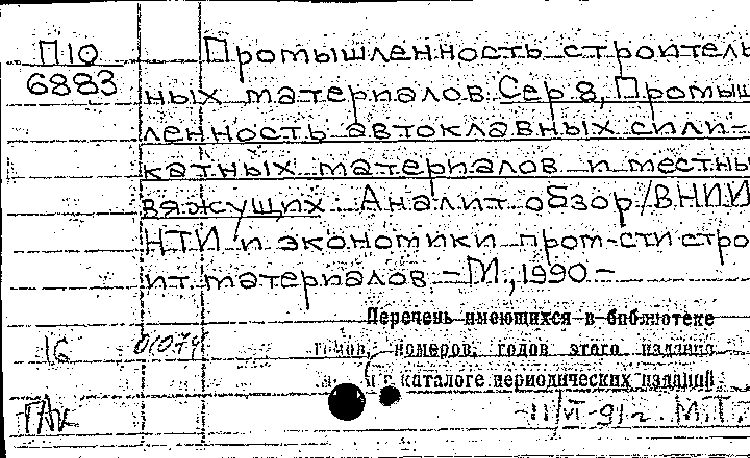 П10
6883
Промышленность строитель
ных материалов. Сер 8, Промыш
ленность автоклавных сили-
катных материалов и местны
вяжущих. Аналит. обзор/ВНИИ
НТИ и экономики пром-сти стро
ит. материалов – М., 1990 –
Перечень имеющихся в библиотеке
томов, номеров, годов этого издания
каталоге периодических изданий.
16 01074
ГАК
11/VI-91г. М.Г.